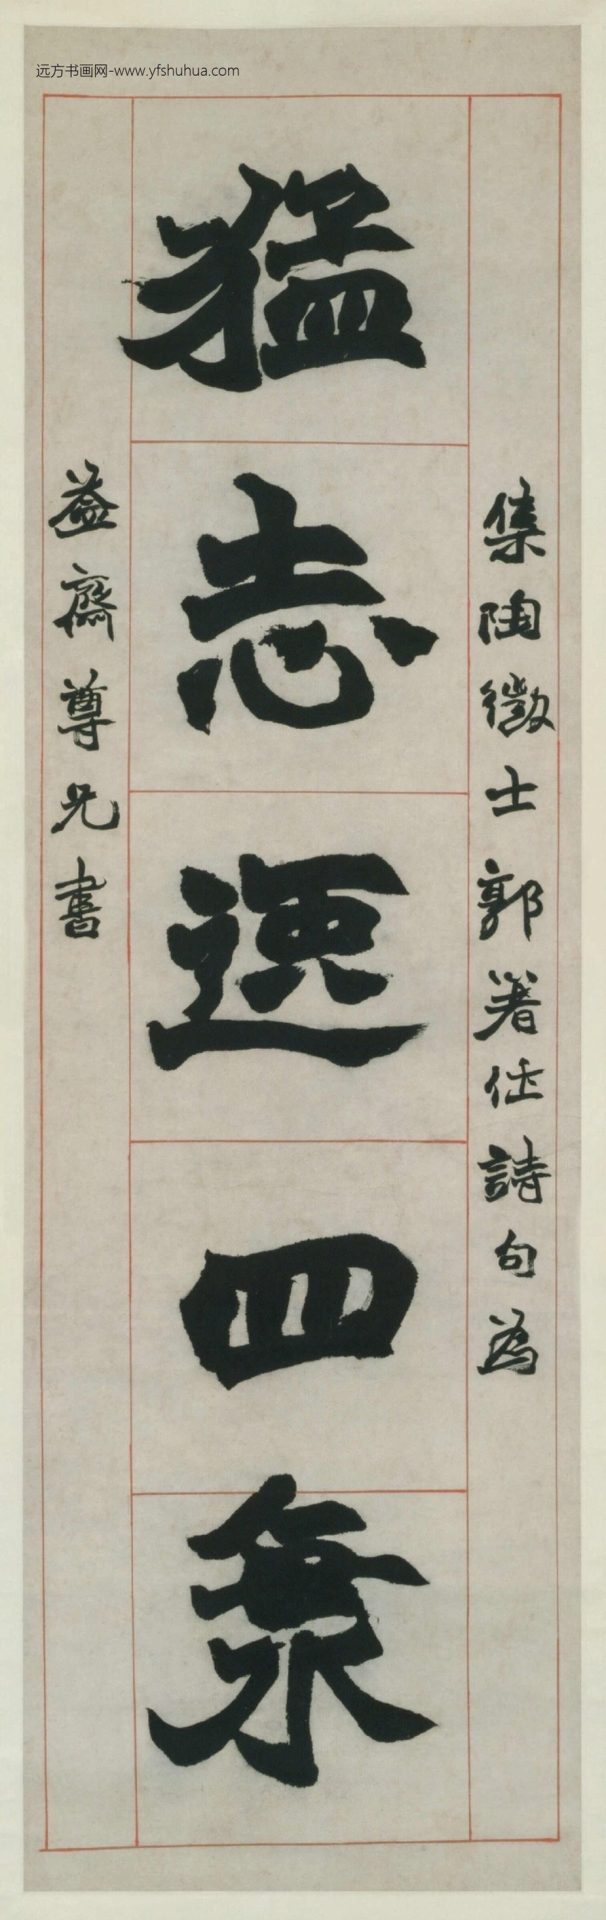 远方书画网-www.yfshuhua.com
集陶徵士郭著作詩句為
猛志逸四海
益齋尊兄書